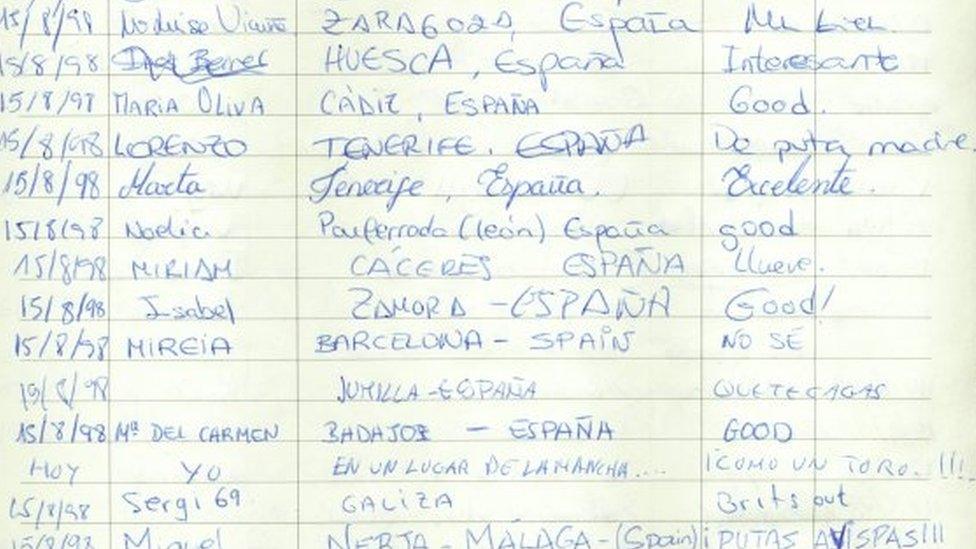 15/8/98 ZARAGOZA, España
15/8/98 HUESCA, España Interesante
15/8/98 MARIA OLIVA CÁDIZ, ESPAÑA Good.
15/8/98 LORENZO TENERIFE. ESPAÑA De puta madre.
15/8/98 Marta Tenerife, España. Excelente.
15/8/98 Noelia Ponferrada (león) España good
15/8/98 MIRIAM CÁCERES ESPAÑA Llueve.
15/8/98 Isabel ZAMORA - ESPAÑA Good!
15/8/98 MIREIA BARCELONA - SPAIN NO SÉ
15/8/98 JUMILLA - ESPAÑA QUETECAGAS
15/8/98 Mª DEL CARMEN BADAJOZ - ESPAÑA GOOD
HOY YO EN UN LUGAR DE LA MANCHA.... ¡COMO UN TORO.!!!
15/8/98 Sergi 69 GALIZA Brits out
15/8/98 Miguel NERJA - MÁLAGA - (Spain) ¡PUTAS AVISPAS!!!